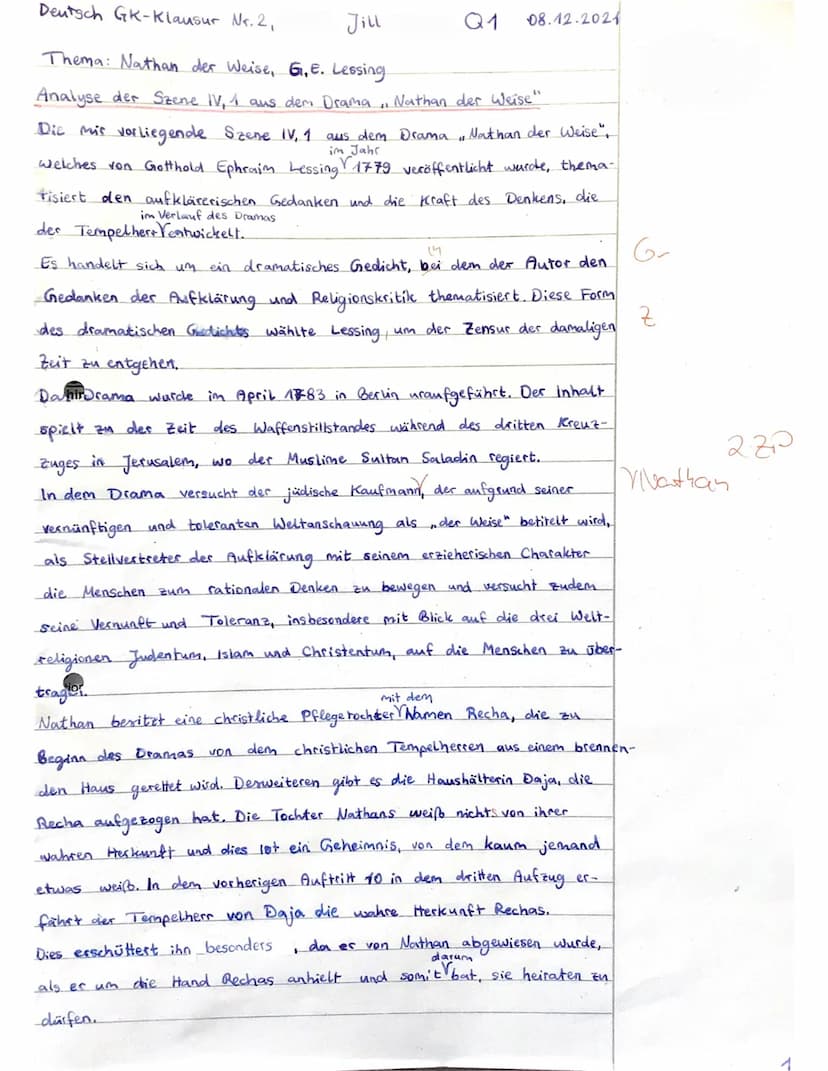 Deutsch GK-Klausur Nr. 2, Jill Q1 08.12.2021
Thema: Nathan der Weise, G.E. Lessing
Analyse der Szene IV,1 aus dem Drama „Nathan der Weise"
Die mir vorliegende Szene IV,1 aus dem Drama „Nathan der Weise",
im Jahr
welches von Gotthold Ephraim Lessing 1779 veröffentlicht wurde, thema-
tisiert den aufklärerischen Gedanken und die Kraft des Denkens, die
im Verlauf des Dramas
der Tempelherr entwickelt.
Es handelt sich um ein dramatisches Gedicht, bei dem der Autor den G
Gedanken der Aufklärung und Religionskritik thematisiert. Diese Form
des dramatischen Gedichts wählte Lessing, um der Zensur der damaligen Z
Zeit zu entgehen.
Drama wurde im April 1783 in Berlin uraufgeführt. Der Inhalt
spielt zu der Zeit des Waffenstillstandes während des dritten Kreuz-
zuges in Jerusalem, wo der Muslime Sultan Saladin regiert.
In dem Drama versucht der jüdische Kaufmann, der aufgrund seiner Nathan
vernünftigen und toleranten Weltanschauung als „der Weise" betitelt wird,
als Stellvertreter der Aufklärung mit seinem erzieherischen Charakter
die Menschen zum rationalen Denken zu bewegen und versucht zudem
seine Vernunft und Toleranz, insbesondere mit Blick auf die drei Welt-
religionen Judentum, Islam und Christentum, auf die Menschen zu über-
tragen.
mit dem
Nathan besitzt eine christliche Pflegetochter Namen Recha, die zu
Beginn des Dramas von dem christlichen Tempelherren aus einem brennen-
den Haus gerettet wird. Desweiteren gibt es die Haushälterin Daja, die
Recha aufgezogen hat. Die Tochter Nathans weiß nichts von ihrer
wahren Herkunft und dies ist ein Geheimnis, von dem kaum jemand
etwas weiß. In dem vorherigen Auftritt 10 in dem dritten Aufzug er-
fährt der Tempelherr von Daja die wahre Herkunft Rechas.
Dies erschüttert ihn besonders , da er von Nathan abgewiesen wurde,
darum
als er um die Hand Rechas anhielt und somit bat, sie heiraten zu
dürfen.
1